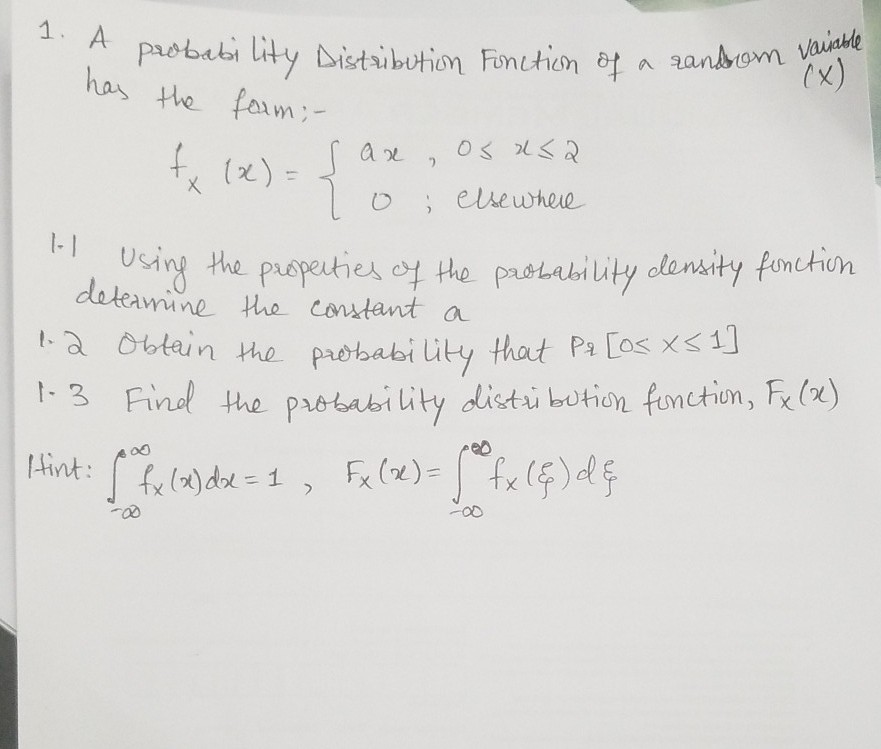 1. A probability Distribution Function of a random variable
(X)
has the form:-
fx (x) = { ax , 0 ≤ x ≤ 2
0 ; elsewhere
1.1 Using the properties of the probability density function
determine the constant a
1.2 Obtain the probability that Pr [0≤ X ≤ 1]
1.3 Find the probability distribution function, Fx (x)
Hint: ∫_{-∞}^{∞} fx (x) dx = 1 , Fx (x) = ∫_{-∞}^{∞} fx (ξ) dξ